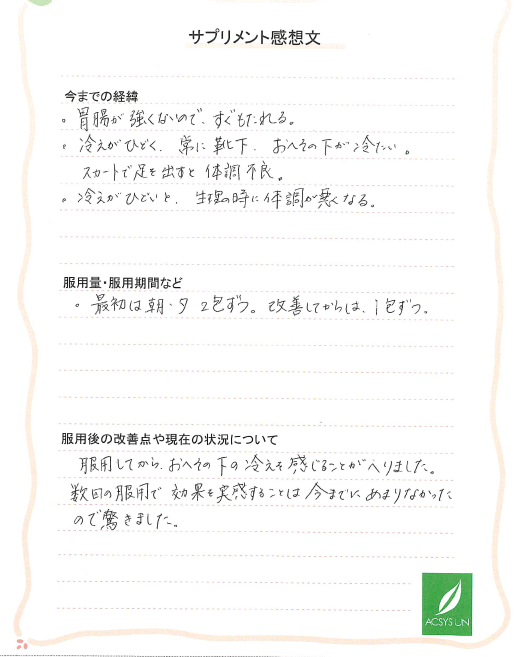 サプリメント感想文
今までの経緯
。胃腸が強くないので、すぐもたれる。
。冷えがひどく、常に靴下、おへその下が冷たい。
スカートで足を出すと体調不良。
。冷えがひどいと、生理の時に体調が悪くなる。
服用量・服用期間など
。最初は朝・夕 2包ずつ。改善してからは、1包ずつ。
服用後の改善点や現在の状況について
服用してから、おへその下の冷えを感じることがへりました。
数回の服用で効果を実感することは今までにあまりなかった
ので驚きました。
ACSYS UN